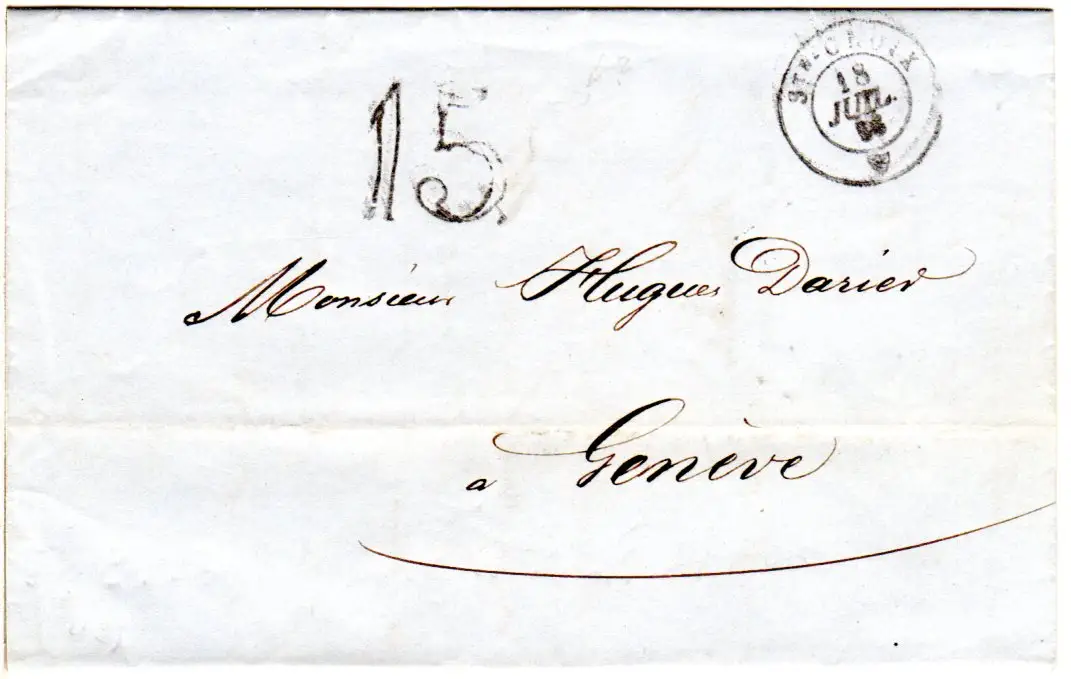 15
STE. CROIX
18
JUIL.
Monsieur Hugues Darier
a Genève